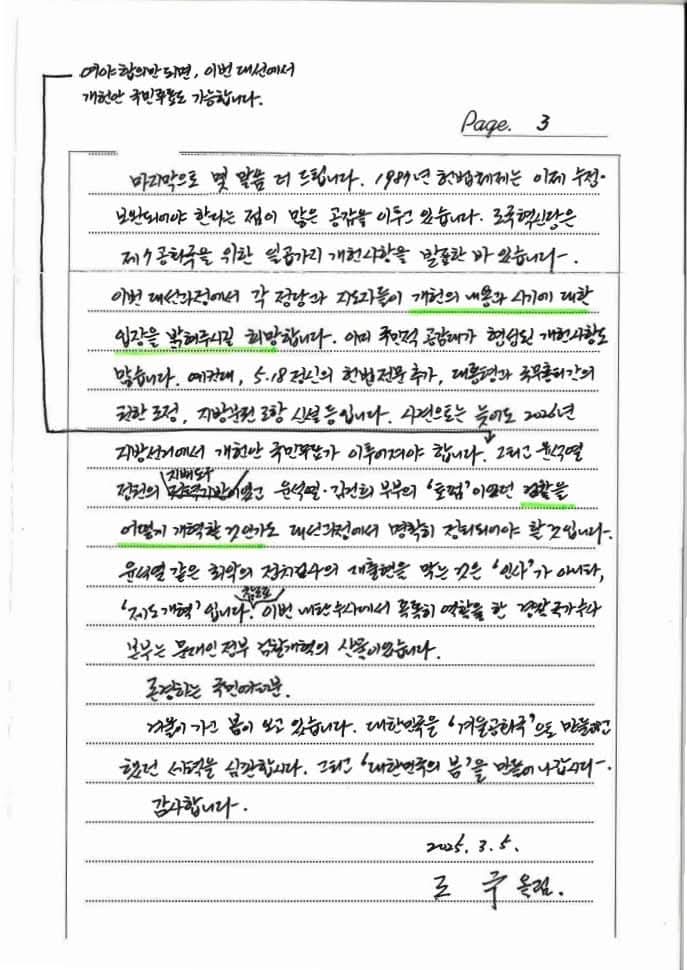 여야 합의만 되면, 이번 대선에서
개헌안 국민투표도 가능합니다.
Page. 3
마지막으로 몇 말씀 더 드립니다. 1987년 헌법체제는 이제 수정·
보완되어야 한다는 점이 많은 공감을 이루고 있습니다. 조국혁신당은
제7공화국을 위한 일곱가지 개헌사항을 발표한 바 있습니다.
이번 대선과정에서 각 정당과 지도자들이 개헌의 내용과 시기에 대한
입장을 밝혀주시길 희망합니다. 이미 국민적 공감대가 형성된 개헌사항도
많습니다. 예컨대, 5·18 정신의 헌법전문 추가, 대통령과 국무총리간의
권한 조정, 지방분권 조항 신설 등입니다. 시점으로는 늦어도 2026년
지방선거에서 개헌안 국민투표가 이루어져야 합니다. 그리고 윤석열
지배도구
정권의 이었고 윤석열·김건희 부부의 '로펌'이었던 검찰을
어떻게 개혁할 것인가도 대선과정에서 명확히 정리되어야 할 것입니다.
윤석열 같은 최악의 정치검사의 재출현을 막는 것은 '인사'가 아니라,
참고로
'제도개혁'입니다. 이번 내란수사에서 톡톡히 역할을 한 경찰 국가수사
본부는 문재인 정부 검찰개혁의 산물이었습니다.
존경하는 국민여러분.
겨울이 가고 봄이 오고 있습니다. 대한민국을 '겨울공화국'으로 만들려고
했던 세력을 심판합시다. 그리고 '대한민국의 봄'을 만들어 나갑시다.
감사합니다.
2025. 3. 5.
조 국 올림.